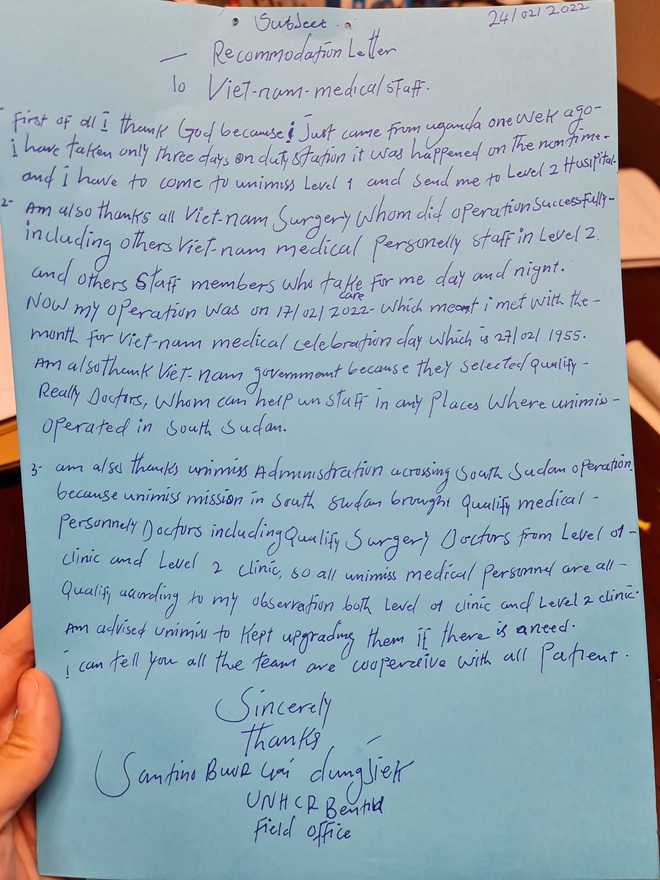 Subject
24/02/2022
— Recommodation Letter
To Viet-nam-medical staff.
First of all I thank God because i Just came from uganda one wek ago-
i have taken only three days on duty station it was happened on the nontime.
and i have to come to unimiss Level 1 and send me to Level 2 Huspital.
2- Am also thanks all Viet-nam Surgery whom did operation Successfully-
including others Viet-nam medical Personelly staff in Level 2.
and others Staff members who take care For me day and night.
Now my operation was on 17/02/2022- which meant i met with the-
month for Viet-nam medical celebration day which is 27/02/1955.
Am also thank Viet-nam government because they selected Qualify-
Really Doctors, whom can help un staff in any Places Where unimiss-
operated in South Sudan.
3- am also thanks unimiss Administration acrossing South Sudan operation.
because unimiss mission in South Sudan brought Qualify medical-
Personnely Doctors including Qualify Surgery Doctors from Level 01-
clinic and Level 2 clinic, so all unimiss medical Personnel are all-
Qualify according to my observation both Level 01 clinic and Level 2 clinic.
Am advised unimiss to Kept upgrading them if there is a need.
i can tell you all the team are cooperative with all Patient.
Sincerely
Thanks
Santino
UNHCR Bentiu
Field office